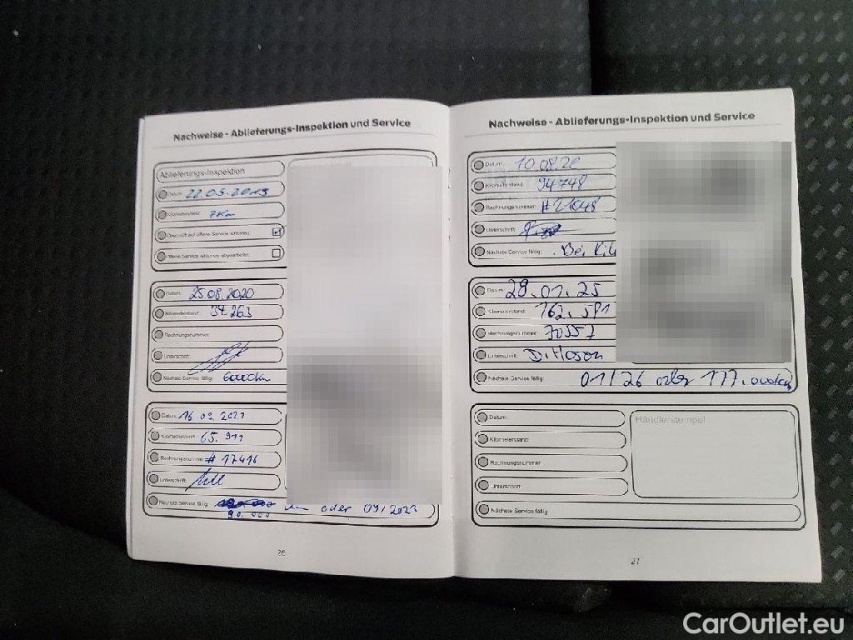 Nachweise - Ablieferungs-Inspektion und Service
Ablieferungs-Inspektion
Datum: 22.05.2019
Kilometerstand: 7km
Datum: 25.08.2020
Kilometerstand: 34.263
Rechnungsnummer:
Unterschrift:
Nächste Service fällig:
Datum: 16 09. 2021
Kilometerstand: 65. 911
Rechnungsnummer: # 17416
Unterschrift:
Nächste Service fällig:
90.000 km oder 09/2022
26
Nachweise - Ablieferungs-Inspektion und Service
Datum: 10.08.20
Kilometerstand: 94748
Rechnungsnummer:
Unterschrift:
Nächste Service fällig: Bei
Datum: 29.01.25
Kilometerstand: 162.591
Rechnungsnummer: 70557
Unterschrift:
Nächste Service fällig: 01/26 oder 177.
Datum:
Händlerstempel
Kilometerstand:
Rechnungsnummer:
Unterschrift:
Nächste Service fällig:
27
CarOutlet.eu